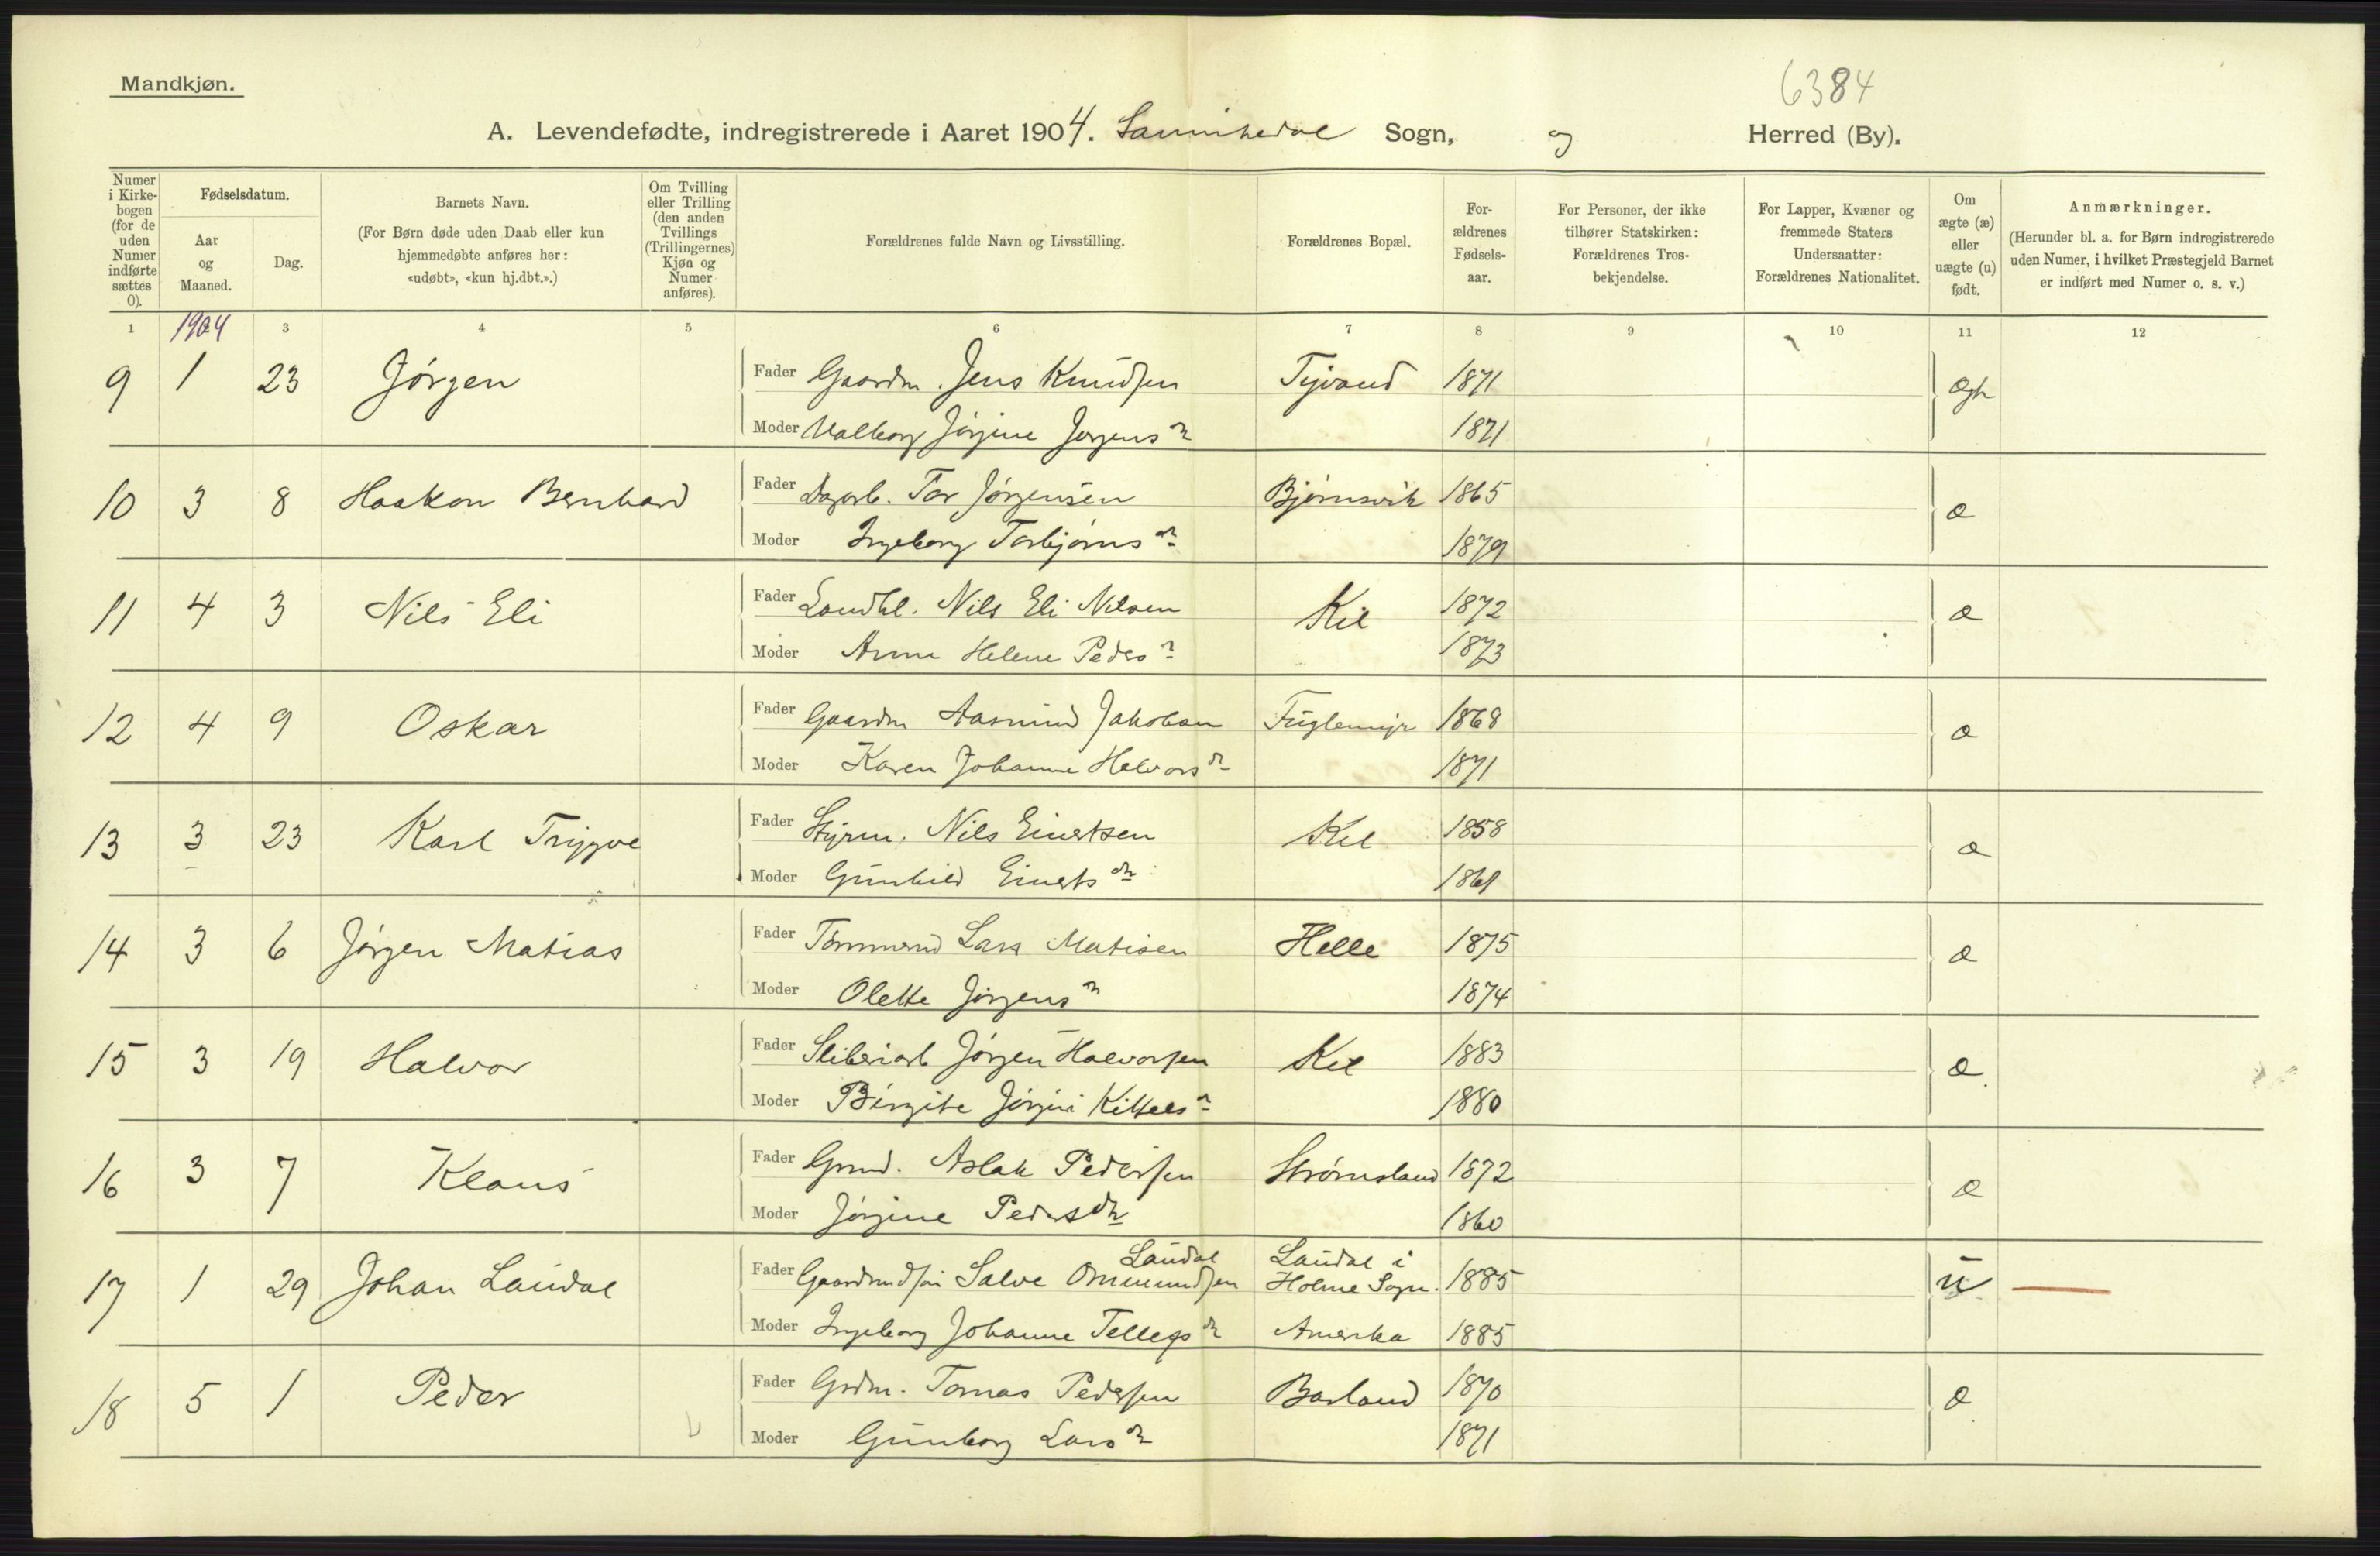 Mandkjøn.
6384
A. Levendefødte, indregistrerede i Aaret 1904. Sannikedal Sogn, og Herred (By).
Numer i Kirkebogen (for de uden Numer indførte sættes 0).
Fødselsdatum.
Aar og Maaned.
Dag.
Barnets Navn.
(For Børn døde uden Daab eller kun hjemmedøbte anføres her: «udøbt», «kun hj.dbt.».)
Om Tvilling eller Trilling (den anden Tvillings (Trillingernes) Kjøn og Numer anføres).
Forældrenes fulde Navn og Livsstilling.
Forældrenes Bopæl.
Forældrenes Fødselsaar.
For Personer, der ikke tilhører Statskirken: Forældrenes Trosbekjendelse.
For Lapper, Kvæner og fremmede Staters Undersaatter: Forældrenes Nationalitet.
Om ægte (æ) eller uægte (u) født.
Anmærkninger.
(Herunder bl. a. for Børn indregistrerede uden Numer, i hvilket Præstegjeld Barnet er indført med Numer o. s. v.)
1 1904 3 4 5 6 7 8 9 10 11 12
9 1 23 Jørgen Fader Gaardm. Jens Knudsen Tyvand 1871 ægte
Moder Valborg Jørgine Jørgensdr 1871
10 3 8 Haakon Bernhard Fader Dagarb. Tor Jørgensen Bjørnsvik 1865 æ
Moder Ingeborg Torbjørnsdr 1879
11 4 3 Nils Eli Fader Landhl. Nils Eli Nilsen Kil 1872 æ
Moder Anne Helene Pedsdr 1873
12 4 9 Oskar Fader Gaardm Aasmund Jakobsen Fuglemyr 1868 æ
Moder Karen Johanne Halvorsdr 1871
13 3 23 Karl Trygve Fader Styrm. Nils Einertsen Kil 1858 æ
Moder Gunhild Einertsdr 1861
14 3 6 Jørgen Matias Fader Tømmermd Lars Matisen Helle 1875 æ
Moder Olette Jørgensdr 1874
15 3 19 Halvor Fader Sliberiarb Jørgen Halvorsen Kil 1883 æ
Moder Birgite Jørgine Kittelsdr 1880
16 3 7 Klaus Fader Grmd. Aslak Pedersen Strømsland 1872 æ
Moder Jørgine Pedersdr 1860
17 1 29 Johan Laudal Fader Gaardmdsøn Salve Ommundsen Laudal Laudal i Holme Sogn. 1885 u
Moder Ingeborg Johanne Tellefsdr Amerika 1885
18 5 1 Peder Fader Grdm. Tomas Pedersen Barland 1870 æ
Moder Gunborg Larsdr 1871